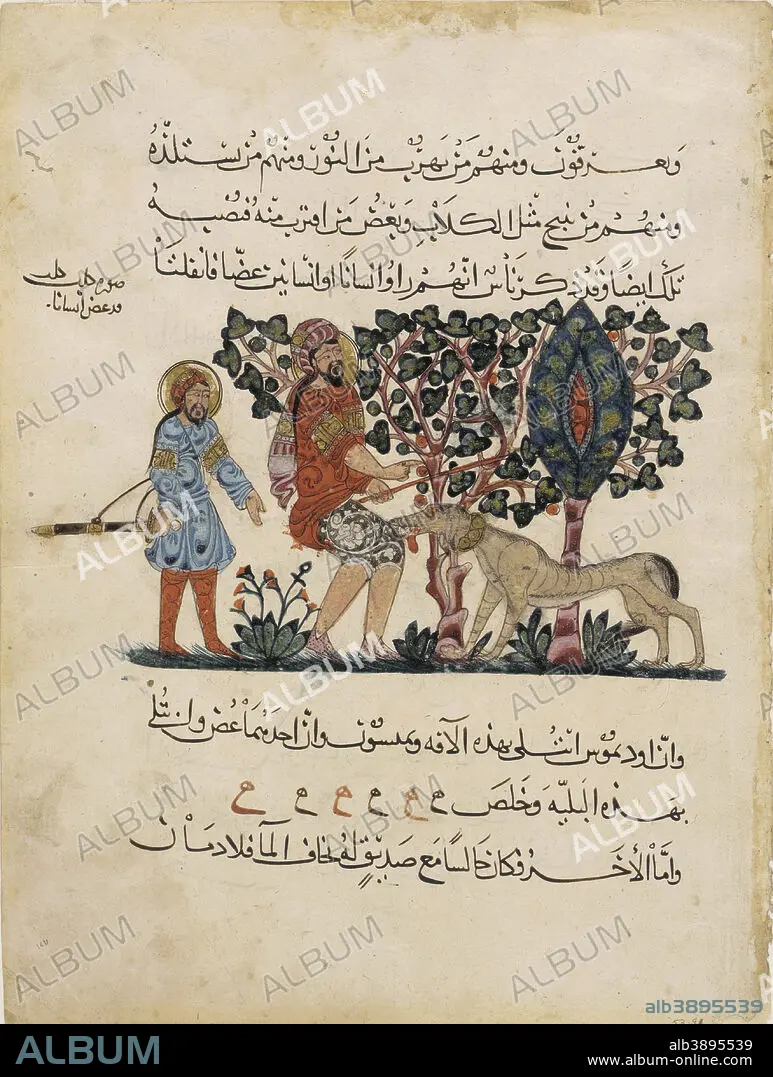 ويعرقون ومنهم من يهرب من النور ومنهم من يستلذه
ومنهم من ينبح مثل الكلاب ويعض من اقترب منه فتصيبه
تلك ايضا وقد ذكر ناس انهم راوا انسانا او انسانين عضا فانفلتا
صورة كلب كلب
قد عض انسانا
وان اوديموس ابتلى بهذه الآفة وان احدهما عض وابتلى
بهذه البلية وخلص ح ح ح ح ح ح
واما الأخر فكان جالسا مع صديق له يخاف الما فلا
ALBUM
alb3895539
ALBUM
alb3895539
www.album-online.com